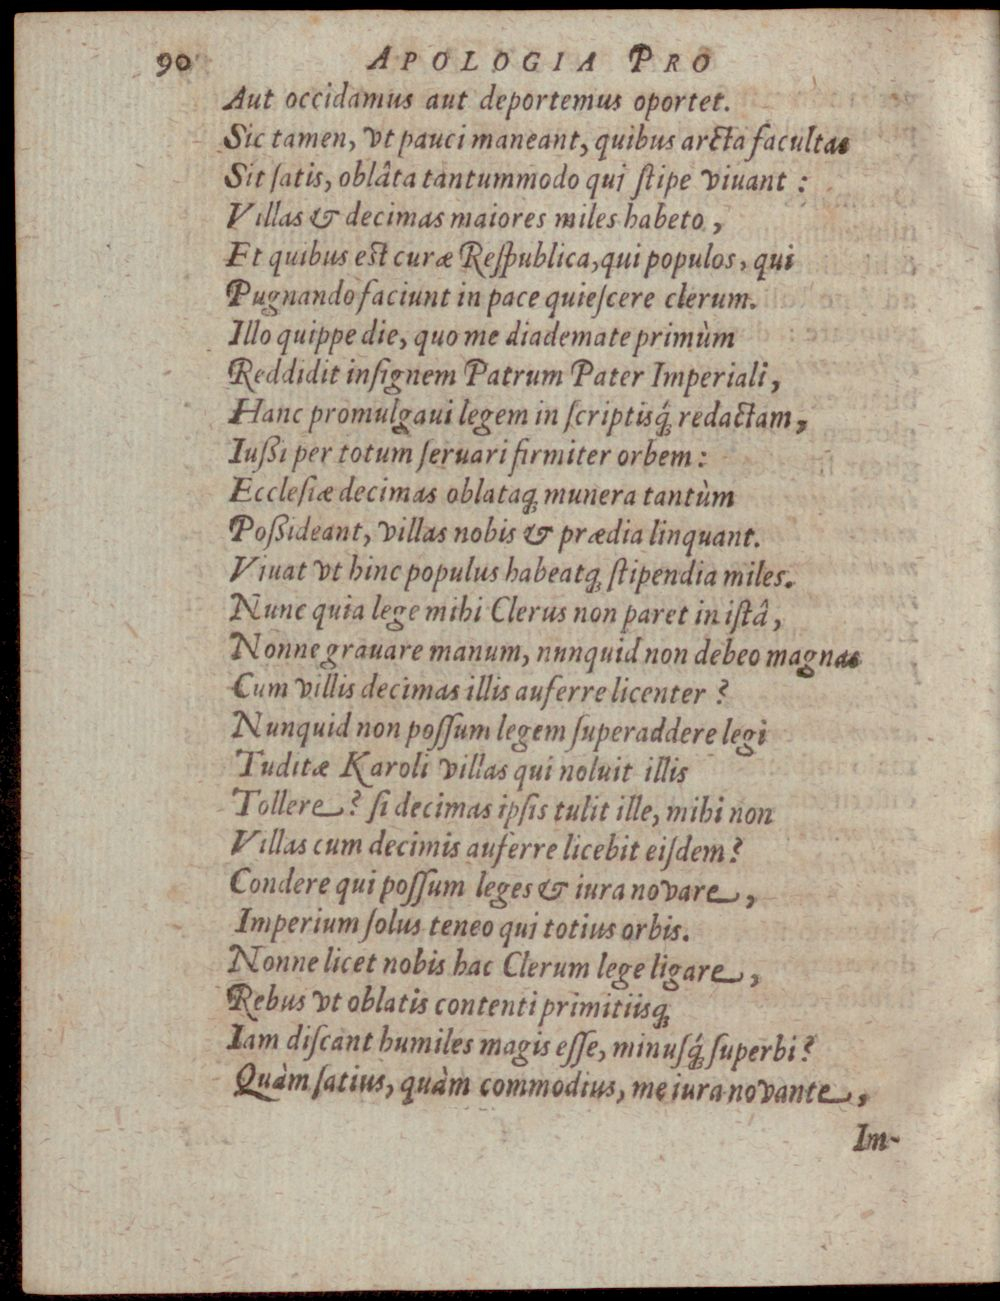 90 APOLOGIA PRO
Aut occidamus aut deportemus oportet.
Sic tamen, vt pauci maneant, quibus arcta facultas
Sit ſatis, oblâta tantummodo qui ſtipe viuant :
Villas & decimas maiores miles habeto ,
Et quibus est curæ Reſpublica, qui populos, qui
Pugnando faciunt in pace quieſcere clerum.
Illo quippe die, quo me diademate primùm
Reddidit inſignem Patrum Pater Imperiali,
Hanc promulgaui legem in ſcriptisq́; redactam,
Iußi per totum ſeruari firmiter orbem :
Eccleſiæ decimas oblataq; munera tantùm
Poßideant, villas nobis & prædia linquant.
Viuat vt hinc populus habeatq; ſtipendia miles.
Nunc quia lege mihi Clerus non paret in iſtâ,
Nonne grauare manum, nunquid non debeo magnas
Cum villis decimas illis auferre licenter ?
Nunquid non poſſum legem ſuperaddere legi
Tuditæ Karoli villas qui noluit illis
Tollere? ſi decimas ipſis tulit ille, mihi non
Villas cum decimis auferre licebit eiſdem?
Condere qui poſſum leges & iura novare,
Imperium ſolus teneo qui totius orbis.
Nonne licet nobis hac Clerum lege ligare,
Rebus vt oblatis contenti primitiisq;
Iam diſcant humiles magis eſſe, minuſq́; ſuperbi?
Quàm ſatius, quàm commodius, me iura novante,
Im-